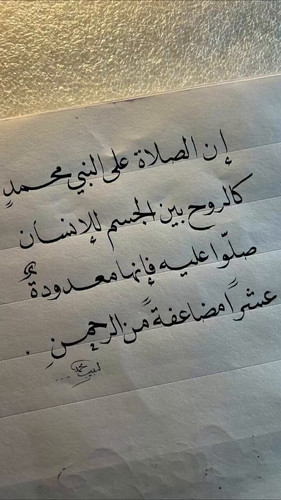 إن الصلاة على النبي محمدٍ
كالروح بين الجسم للإنسان
صلّوا عليه فإنها معدودةٌ
عشراً مضاعفة من الرحمنِ .